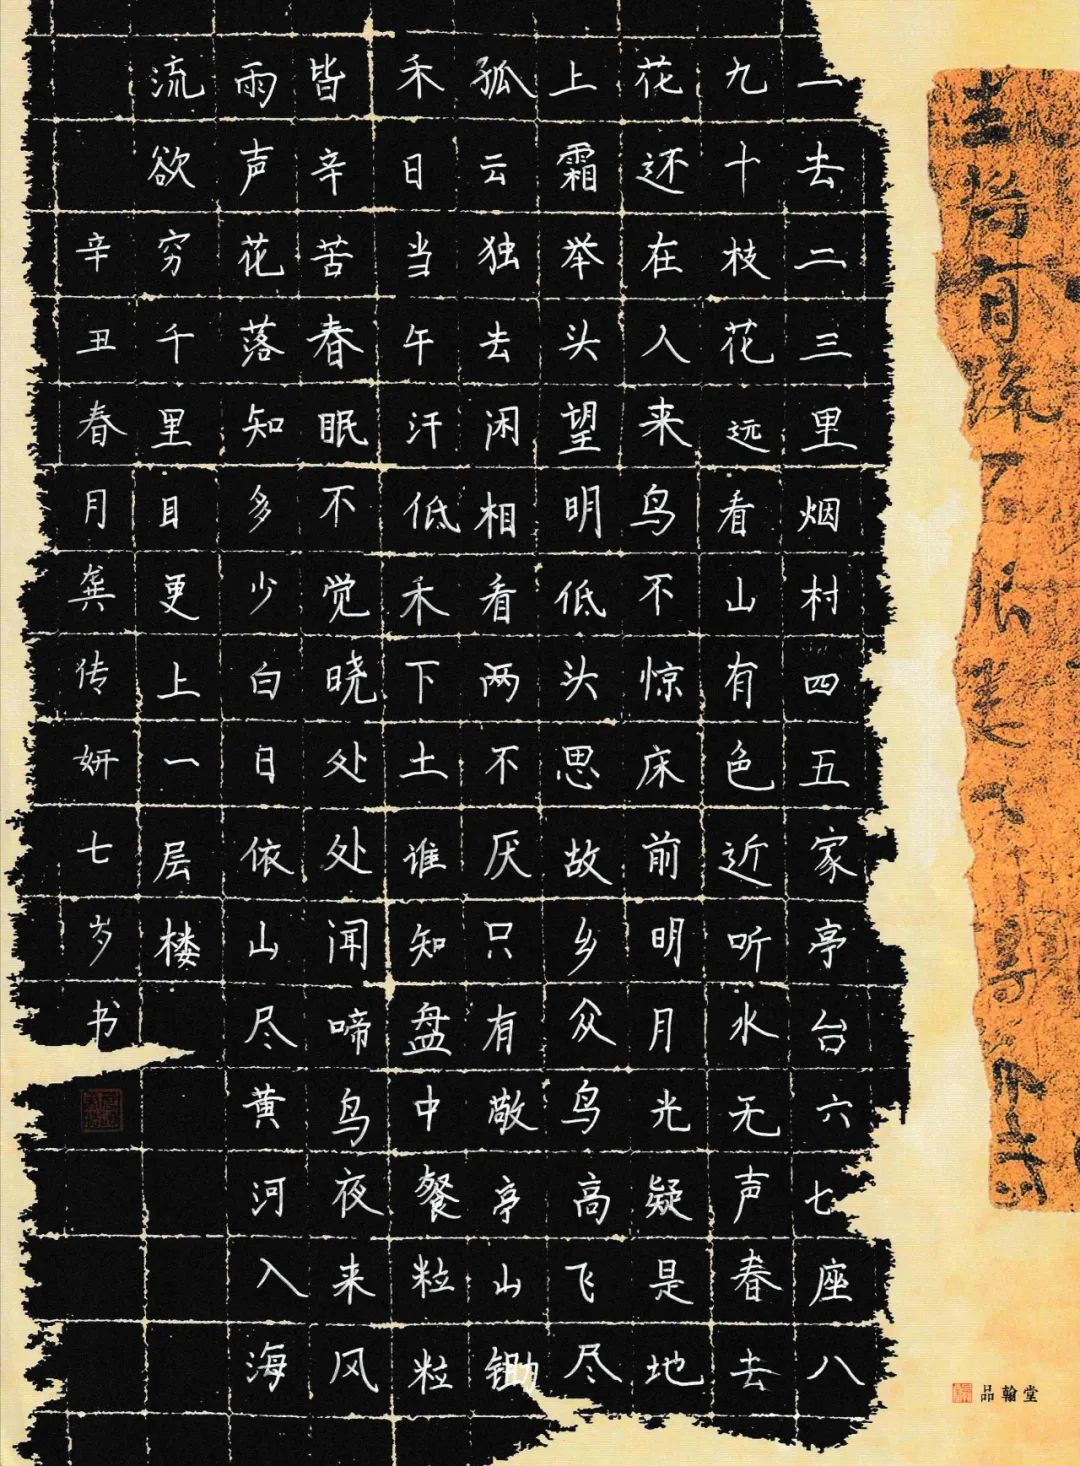 一去二三里烟村四五家亭台六七座八
九十枝花远看山有色近听水无声春去
花还在人来鸟不惊床前明月光疑是地
上霜举头望明低头思故乡众鸟高飞尽
孤云独去闲相看两不厌只有敬亭山锄
禾日当午汗低禾下土谁知盘中餐粒粒
皆辛苦春眠不觉晓处处闻啼鸟夜来风
雨声花落知多少白日依山尽黄河入海
流欲穷千里目更上一层楼
辛丑春月龚传妍七岁书
品翰堂